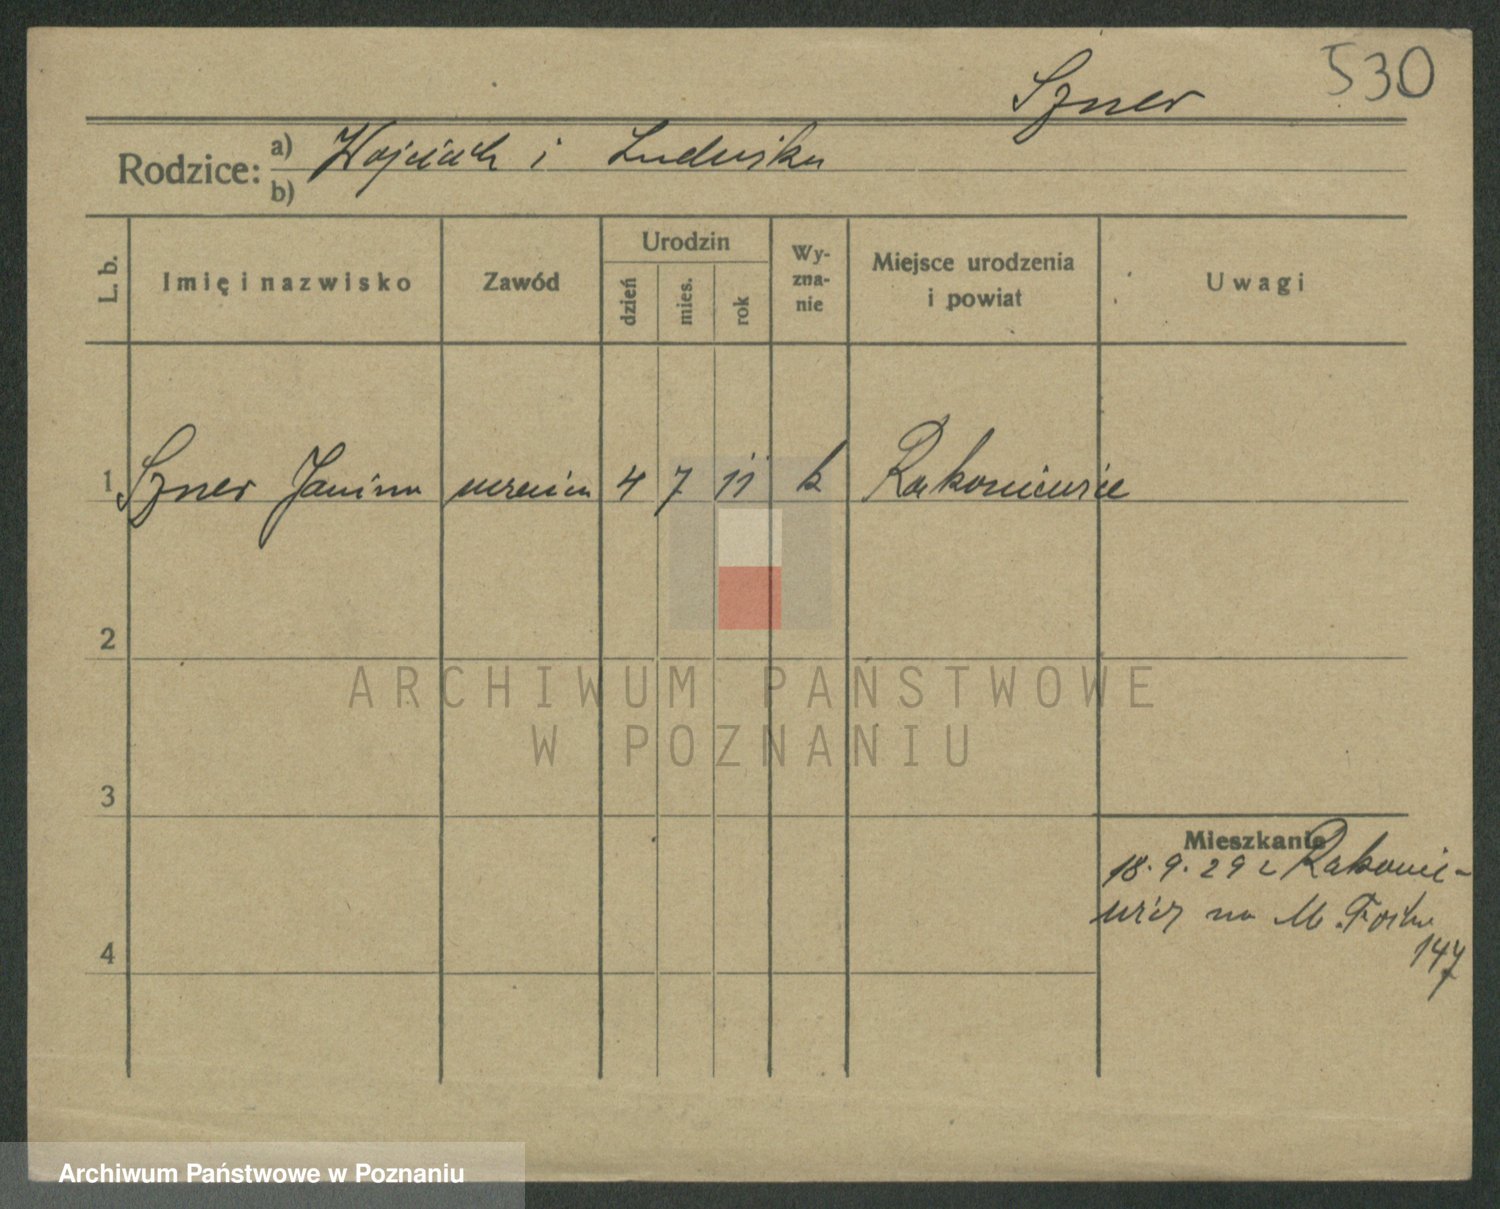 530
Szner
Rodzice: a) Wojciech i Ludwika
b)
L. b. Imię i nazwisko Zawód Urodzin dzień mies. rok Wy-zna-nie Miejsce urodzenia i powiat Uwagi
1 Szner Janina uczenica 4 7 11 k Rakoniewice
2
3
4
Mieszkanie
18.9.29 z Rakonie-
wic na M. Focha
147
ARCHIWUM PAŃSTWOWE
W POZNANIU
Archiwum Państwowe w Poznaniu